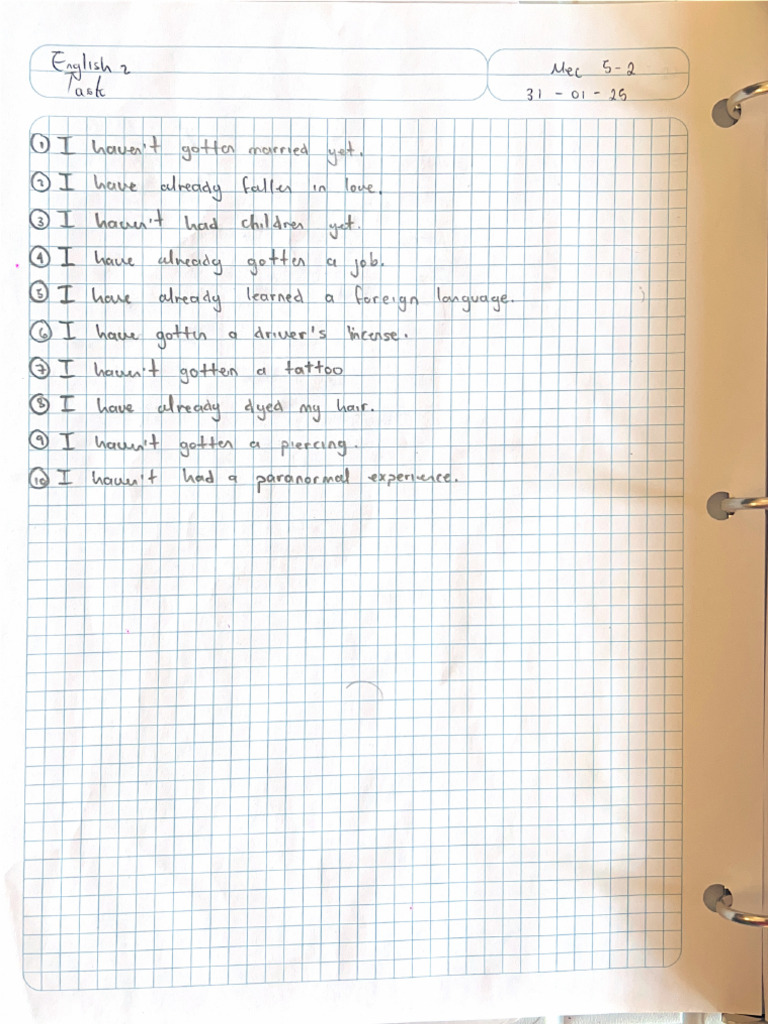 English 2
Task
Mec 5-2
31-01-25
① I haven't gotten married yet.
② I have already fallen in love.
③ I haven't had children yet.
④ I have already gotten a job.
⑤ I have already learned a foreign language.
⑥ I have gotten a driver's lincense.
⑦ I haven't gotten a tattoo
⑧ I have already dyed my hair.
⑨ I haven't gotten a piercing.
⑩ I haven't had a paranormal experience.